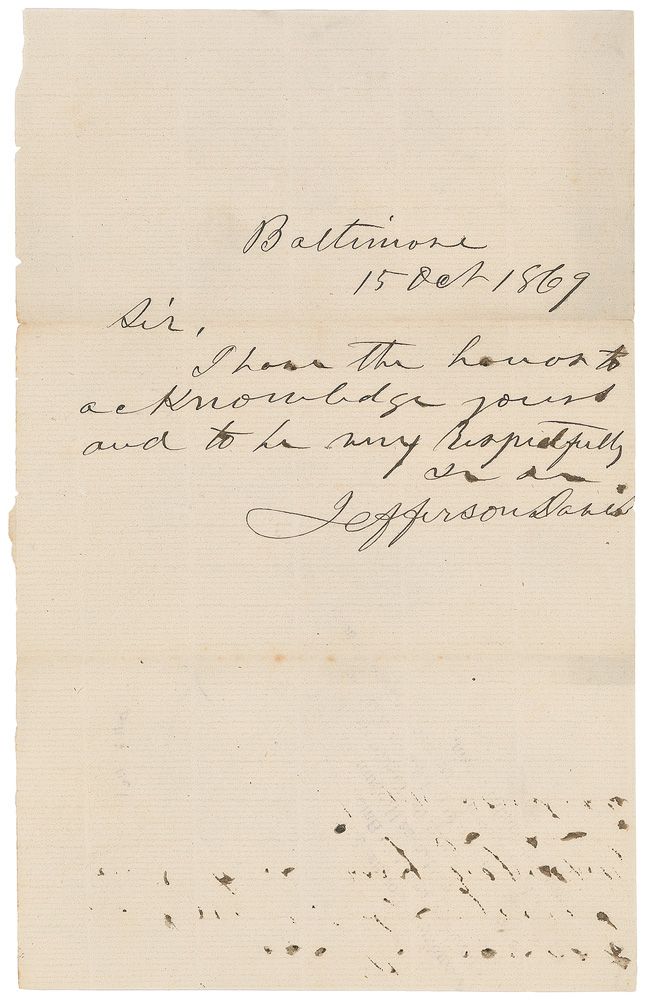 Baltimore
15 Oct 1869
Sir,
I have the honor to
acknowledge yours
and to be very Respectfully
&c &c
Jefferson Davis